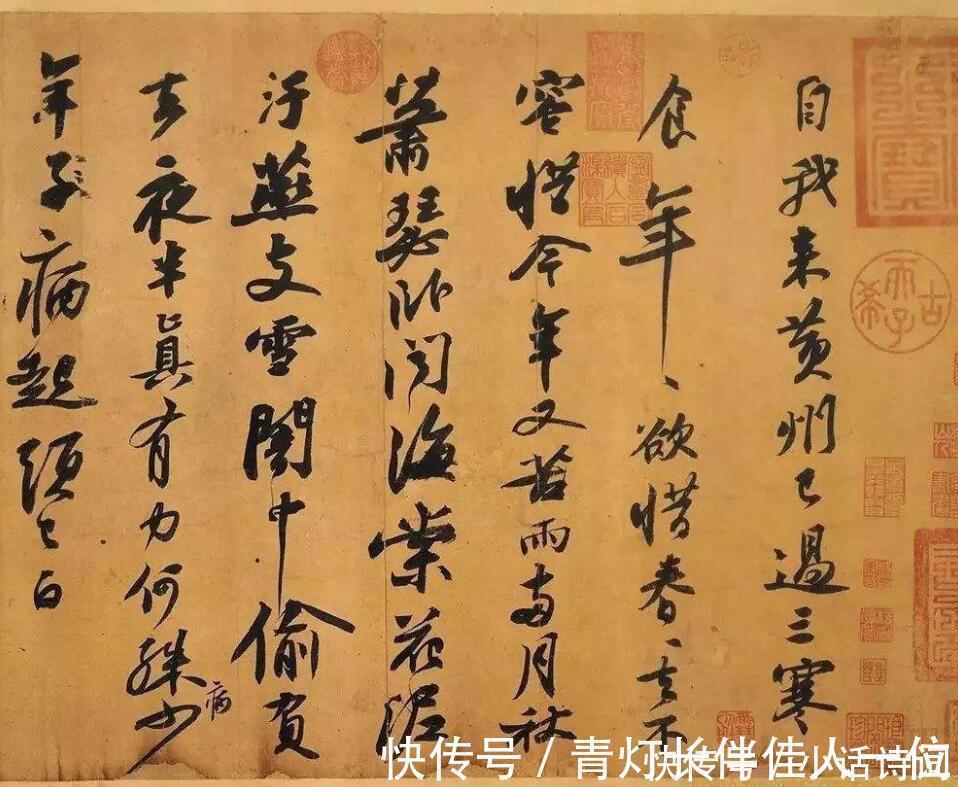 自我来黄州已過三寒
食年〻欲惜春〻去不
容惜今年又苦雨两月秋
蕭瑟卧聞海棠花泥
汙燕支雪闇中偷負
去夜半真有力何殊病少
年子病起頭已白
古希天子
快传号 /